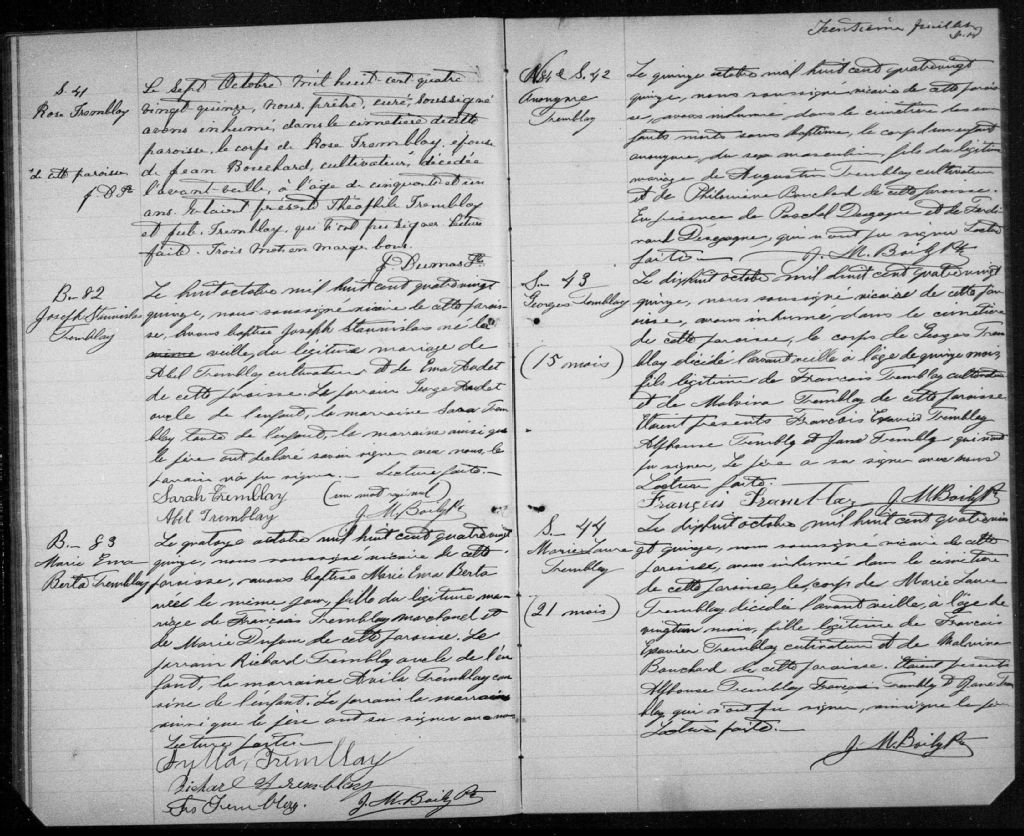 S. 41
Rose Tremblay
d. cette paroisse
J. D. Ptre
Le sept Octobre mil huit-cent quatre
vingt quinze, nous, prêtre, curé, soussigné
avons inhumé, dans le cimetière de cette
paroisse, le corps de Rose Tremblay, épouse
de Jean Bouchard, cultivateur, décédée
l'avant-veille, à l'âge de cinquante et un
ans. Etaient présents Théophile Tremblay
et Tremblay, qui n'ont pu signer. Lecture
faite. Trois mots en marge bons.
J. Dumas Ptre
B- 82
Joseph Stanislas
Tremblay
Le huit octobre mil huit cent quatrevingt
quinze, nous soussigné vicaire de cette parois-
se, avons baptisé Joseph Stannislas né la
même veille, du légitime mariage de
Abel Tremblay cultivateur et de Ema Audet
de cette paroisse. Le parrain George Audet
oncle de l'enfant, la marraine Sara Trem
blay tante de l'enfant, la marraine ainsi que
le père ont déclaré savoir signer avec nous, le
parrain n'a pu signer. Lecture faite.-
Sarah Tremblay (un mot rayé nul)
Abel Tremblay J. M. Boily Ptre
B.- 83
Marie Ema
Berta Tremblay
Le quatorze octobre mil huit cent quatrevingt
quinze, nous soussigné vicaire de cette
paroisse, avons baptisé Marie Ema Berta
née le même jour, fille du légitime ma-
riage de François Tremblay marchand et
de Marie Dufour de cette paroisse. Le
parrain Richard Tremblay oncle de l'en
fant, la marraine Tremblay cou
sine de l'enfant. Le parrain la marraine
ainsi que le père ont su signer avec nous
Lecture faite.-
Tremblay
Richard Tremblay
Frs Tremblay. J. M. Boily Ptre
Trentième feuillet
S. 42
Anonyme
Tremblay
Le quinze octobre mil huit cent quatrevingt
quinze, nous soussigné vicaire de cette parois
se, avons inhumé, dans le cimetière des en
fants morts sans baptême, le corps d'un enfant
anonyme, du sexe masculin, fils du légitime
mariage de Augustin Tremblay cultivateur
et de Philomène Bouchard de cette paroisse.
En présence de Paschal Desgagné et de Ferdi
nand Desgagné, qui n'ont pu signer Lecture
faite.- J. M. Boily Ptre
S- 43
Georges Tremblay
(15 mois)
Le dixhuit octobre mil huit cent quatrevingt
quinze, nous soussigné vicaire de cette pa
roisse, avons inhumé, dans le cimetière
de cette paroisse, le corps de Georges Trem
blay décédé l'avant veille à l'âge de quinze mois,
fils légitime de François Tremblay cultivateur
et de Malvina Tremblay de cette paroisse
Etaient présents François Xavier Tremblay
Alphonse Trembly et Jane Trembly qui n'ont
pu signer, Le père a su signer avec nous
Lecture faite.-
François Tramblay J. M. Boily Ptre
S- 44
Marie Laure
Tremblay
(21 mois)
Le dixhuit octobre mil huit cent quatrevin
gt quinze, nous soussigné vicaire de cette
paroisse, avons inhumé dans le cimetière
de cette paroisse, le corps de Marie Laure
Tremblay décédée l'avant veille, à l'âge de
vingtun mois, fille légitime de François
Xavier Tremblay cultivateur et de Malvina
Bouchard de cette paroisse. Etaient présents
Alphonse Tremblay François Trembly et Jane Trem
blay, qui n'ont pu signer, ainsi que le père
Lecture faite.-
J. M. Boily Ptre